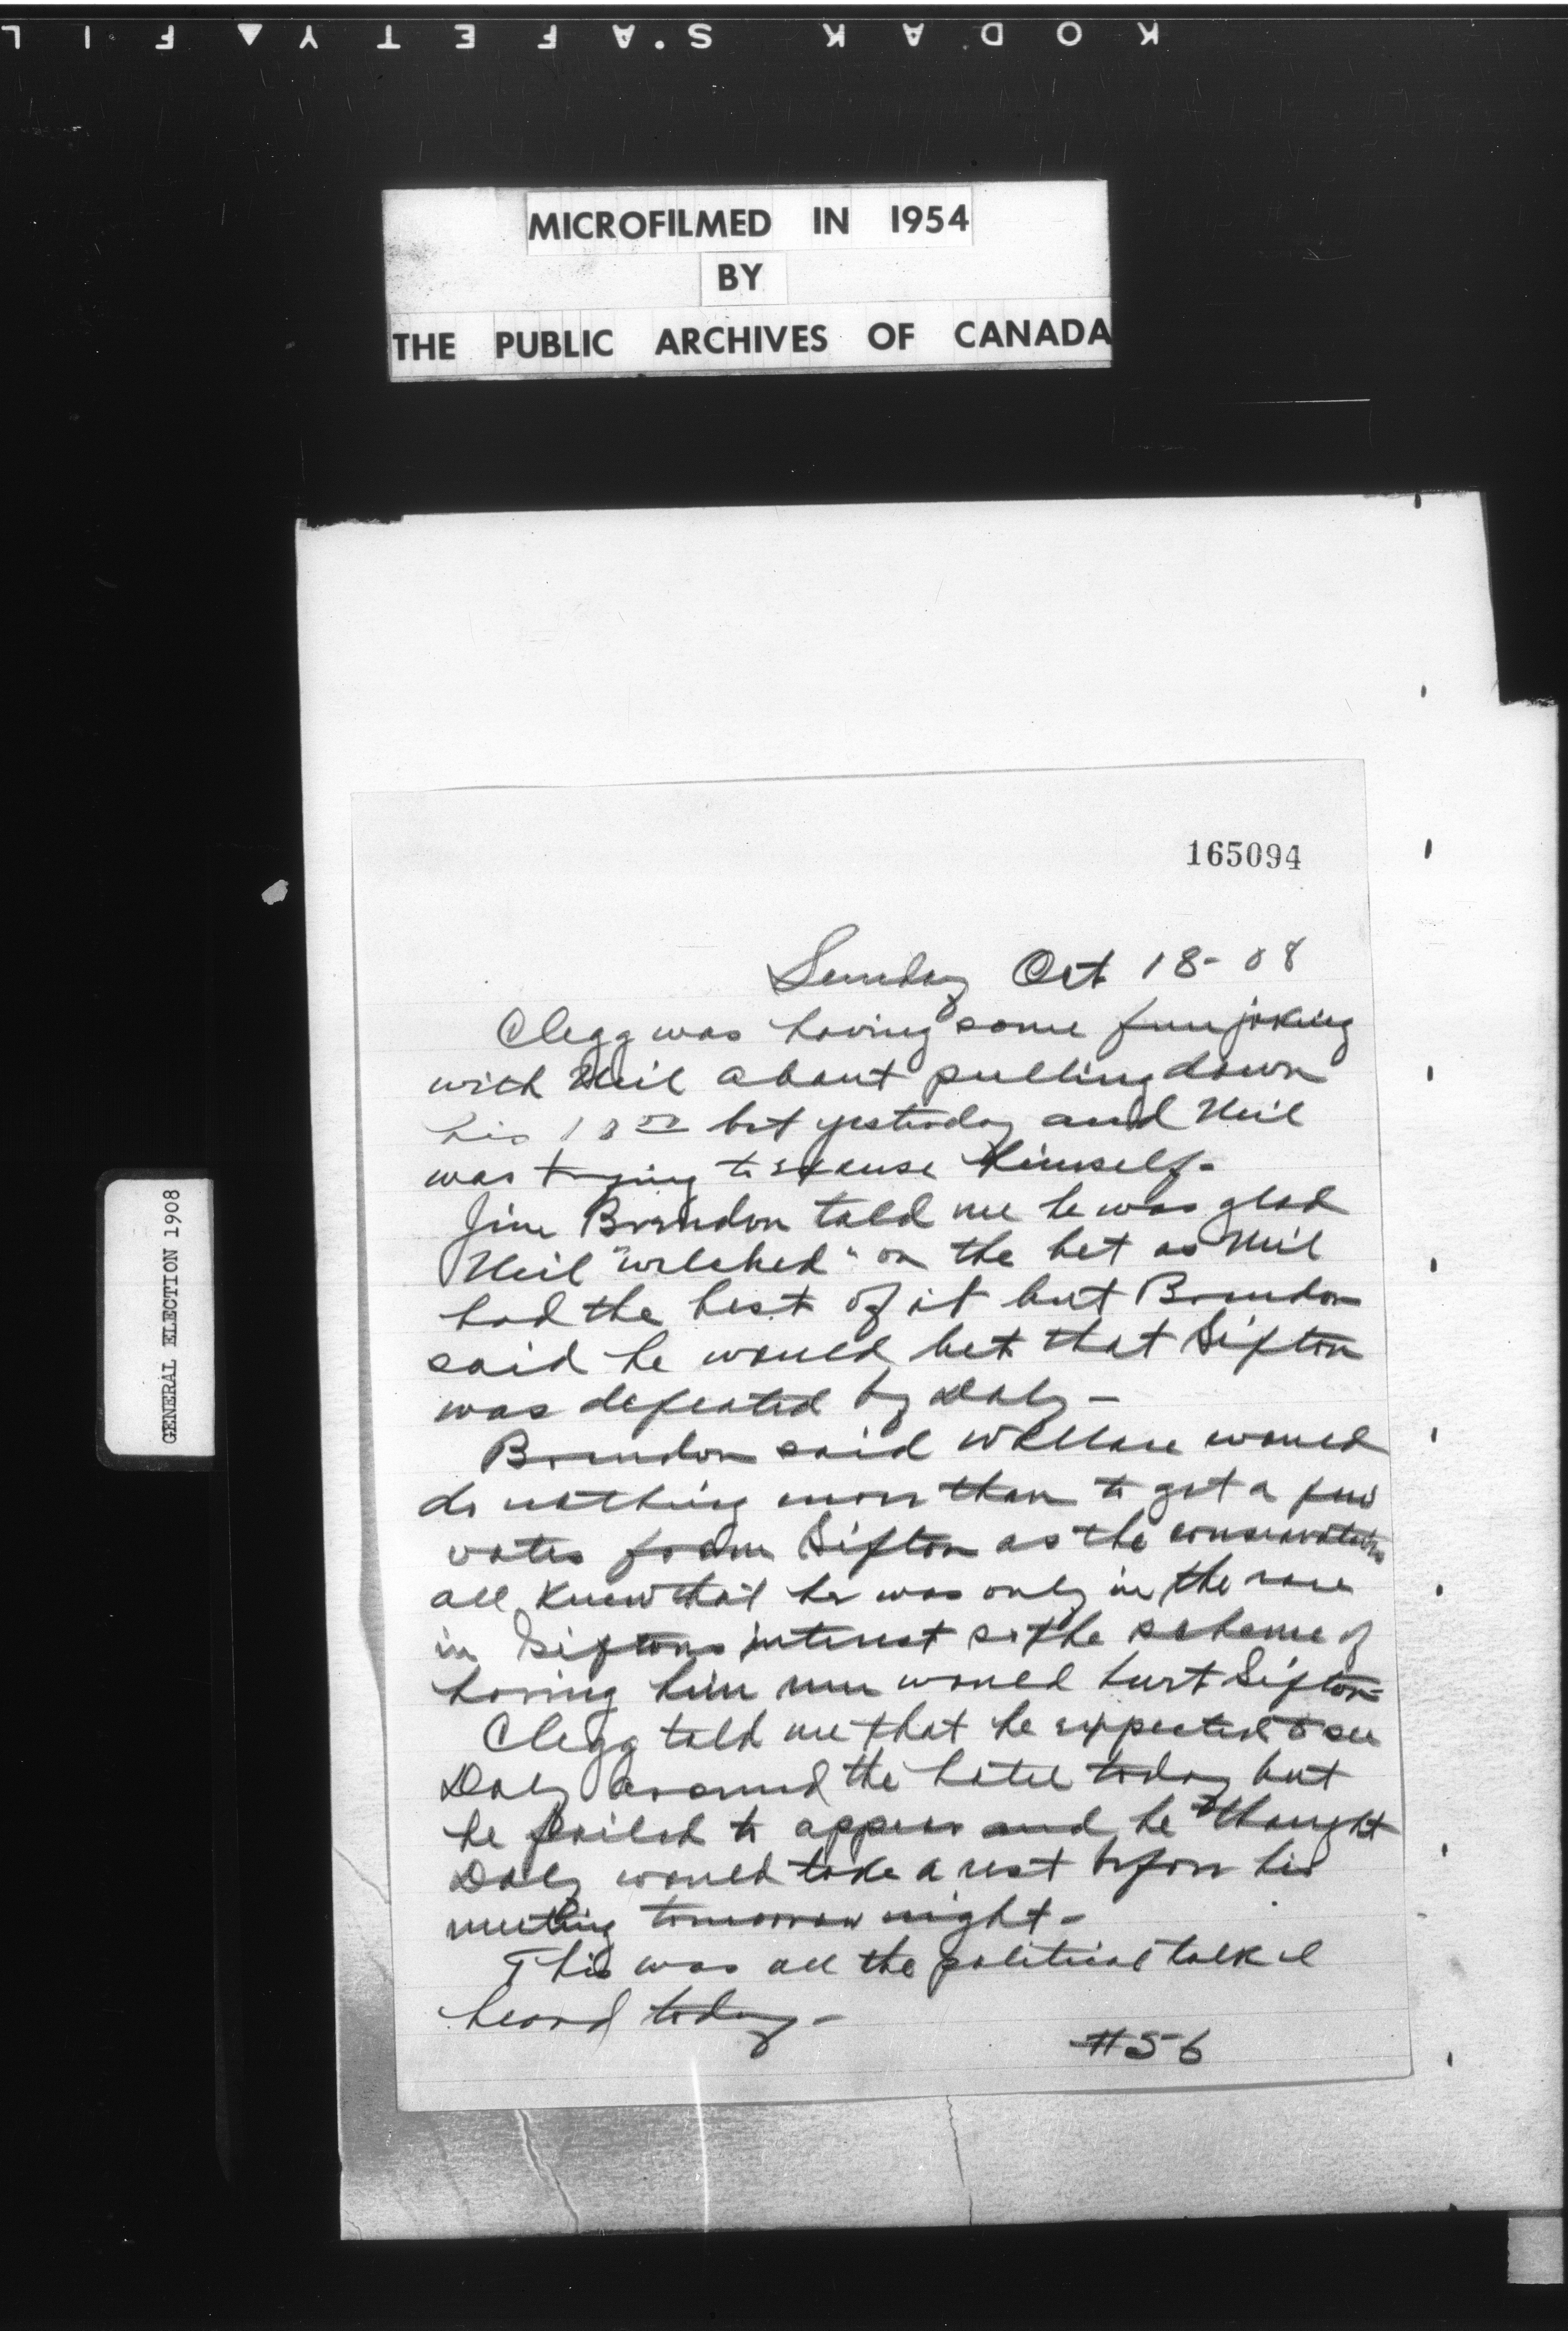 KODAK SAFETY FIL
MICROFILMED IN 1954
BY
THE PUBLIC ARCHIVES OF CANADA
GENERAL ELECTION 1908
165094
Sunday Oct 18-08
Clegg was having some fun joking
with Neil about pulling down
his bet yesterday and Neil
was trying to excuse himself-
Jim Brandon told me he was glad
Neil "welched" on the bet as Neil
had the best of it but Brandon
said he would bet that Sifton
was defeated by Daly-
Brandon said Wallace would
do nothing more than to get a few
votes from Sifton as the conservatives
all knew that he was only in the race
in Siftons interest so the scheme of
having him run would hurt Sifton-
Clegg told me that he expected to see
Daly around the hotel today but
he failed to appear and he thought
Daly would take a rest before his
meeting tomorrow night-
This was all the political talk I
heard today-
#56